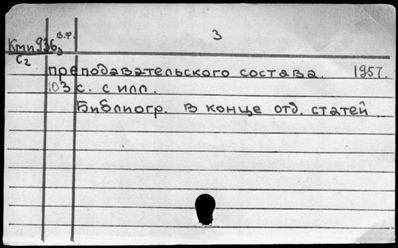 В.Р. 3
Кмп936з
С2
преподавательского состава. 1957.
103 с. с илл.
Библиогр. в конце отд. статей